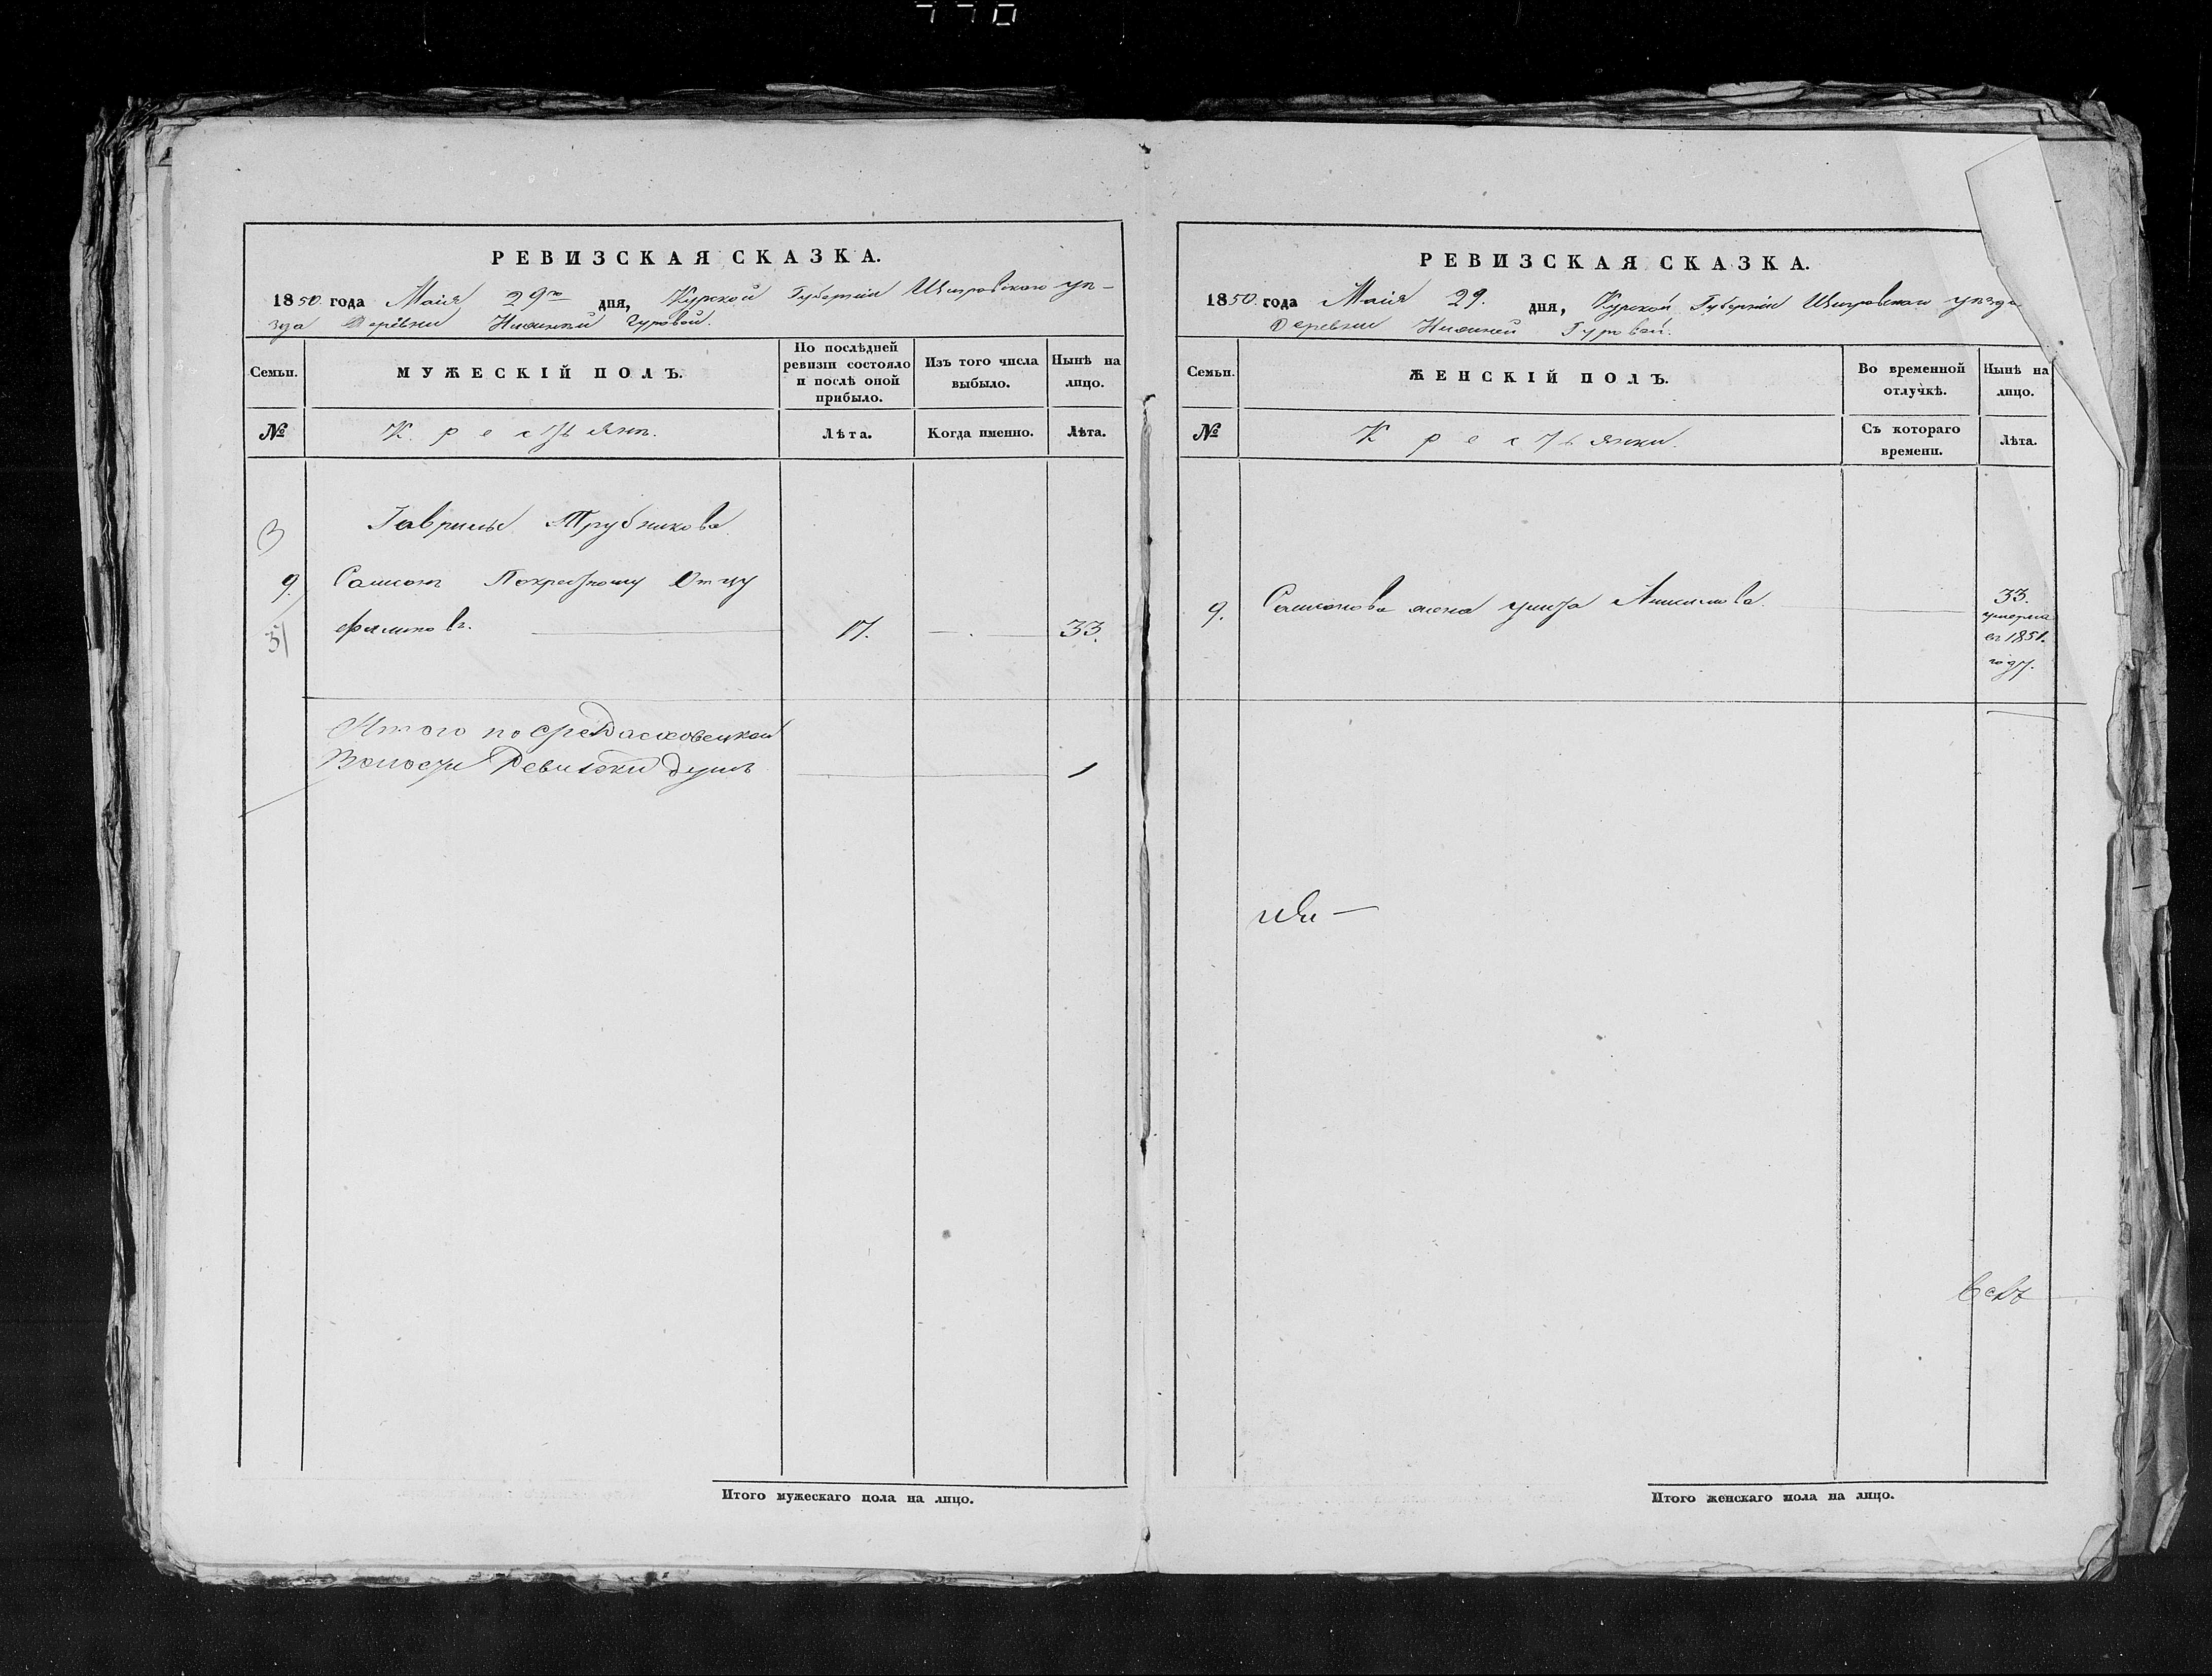 770
РЕВИЗСКАЯ СКАЗКА.
1850. года Маія 29го дня, Курской Губерніи Щигровскаго уѣ-
зда Деревни Нижней Гуровой.
Семьи.
МУЖЕСКІЙ ПОЛЪ.
По послѣдней ревизіи состояло и послѣ оной прибыло.
Изъ того числа выбыло.
Нынѣ на лицо.
№
Крестьянъ.
Лѣта.
Когда именно.
Лѣта.
Гаврилы Трубникова
3
9. Самсонъ Покрестному Отцу
31
17. 33.
Итого по
Волости Ревизски душъ 1
Итого мужескаго пола на лицо.
РЕВИЗСКАЯ СКАЗКА.
1850. года Маія 29. дня, Курской Губерніи Щигровскаго уѣзда
Деревни Нижней Гуровой.
Семьи.
ЖЕНСКІЙ ПОЛЪ.
Во временной отлучкѣ.
Нынѣ на лицо.
№
Крестьянки.
Съ котораго времени.
Лѣта.
9. Самсонова жена 33.
умерла
въ 1851.
году.
Итого женскаго пола на лицо.